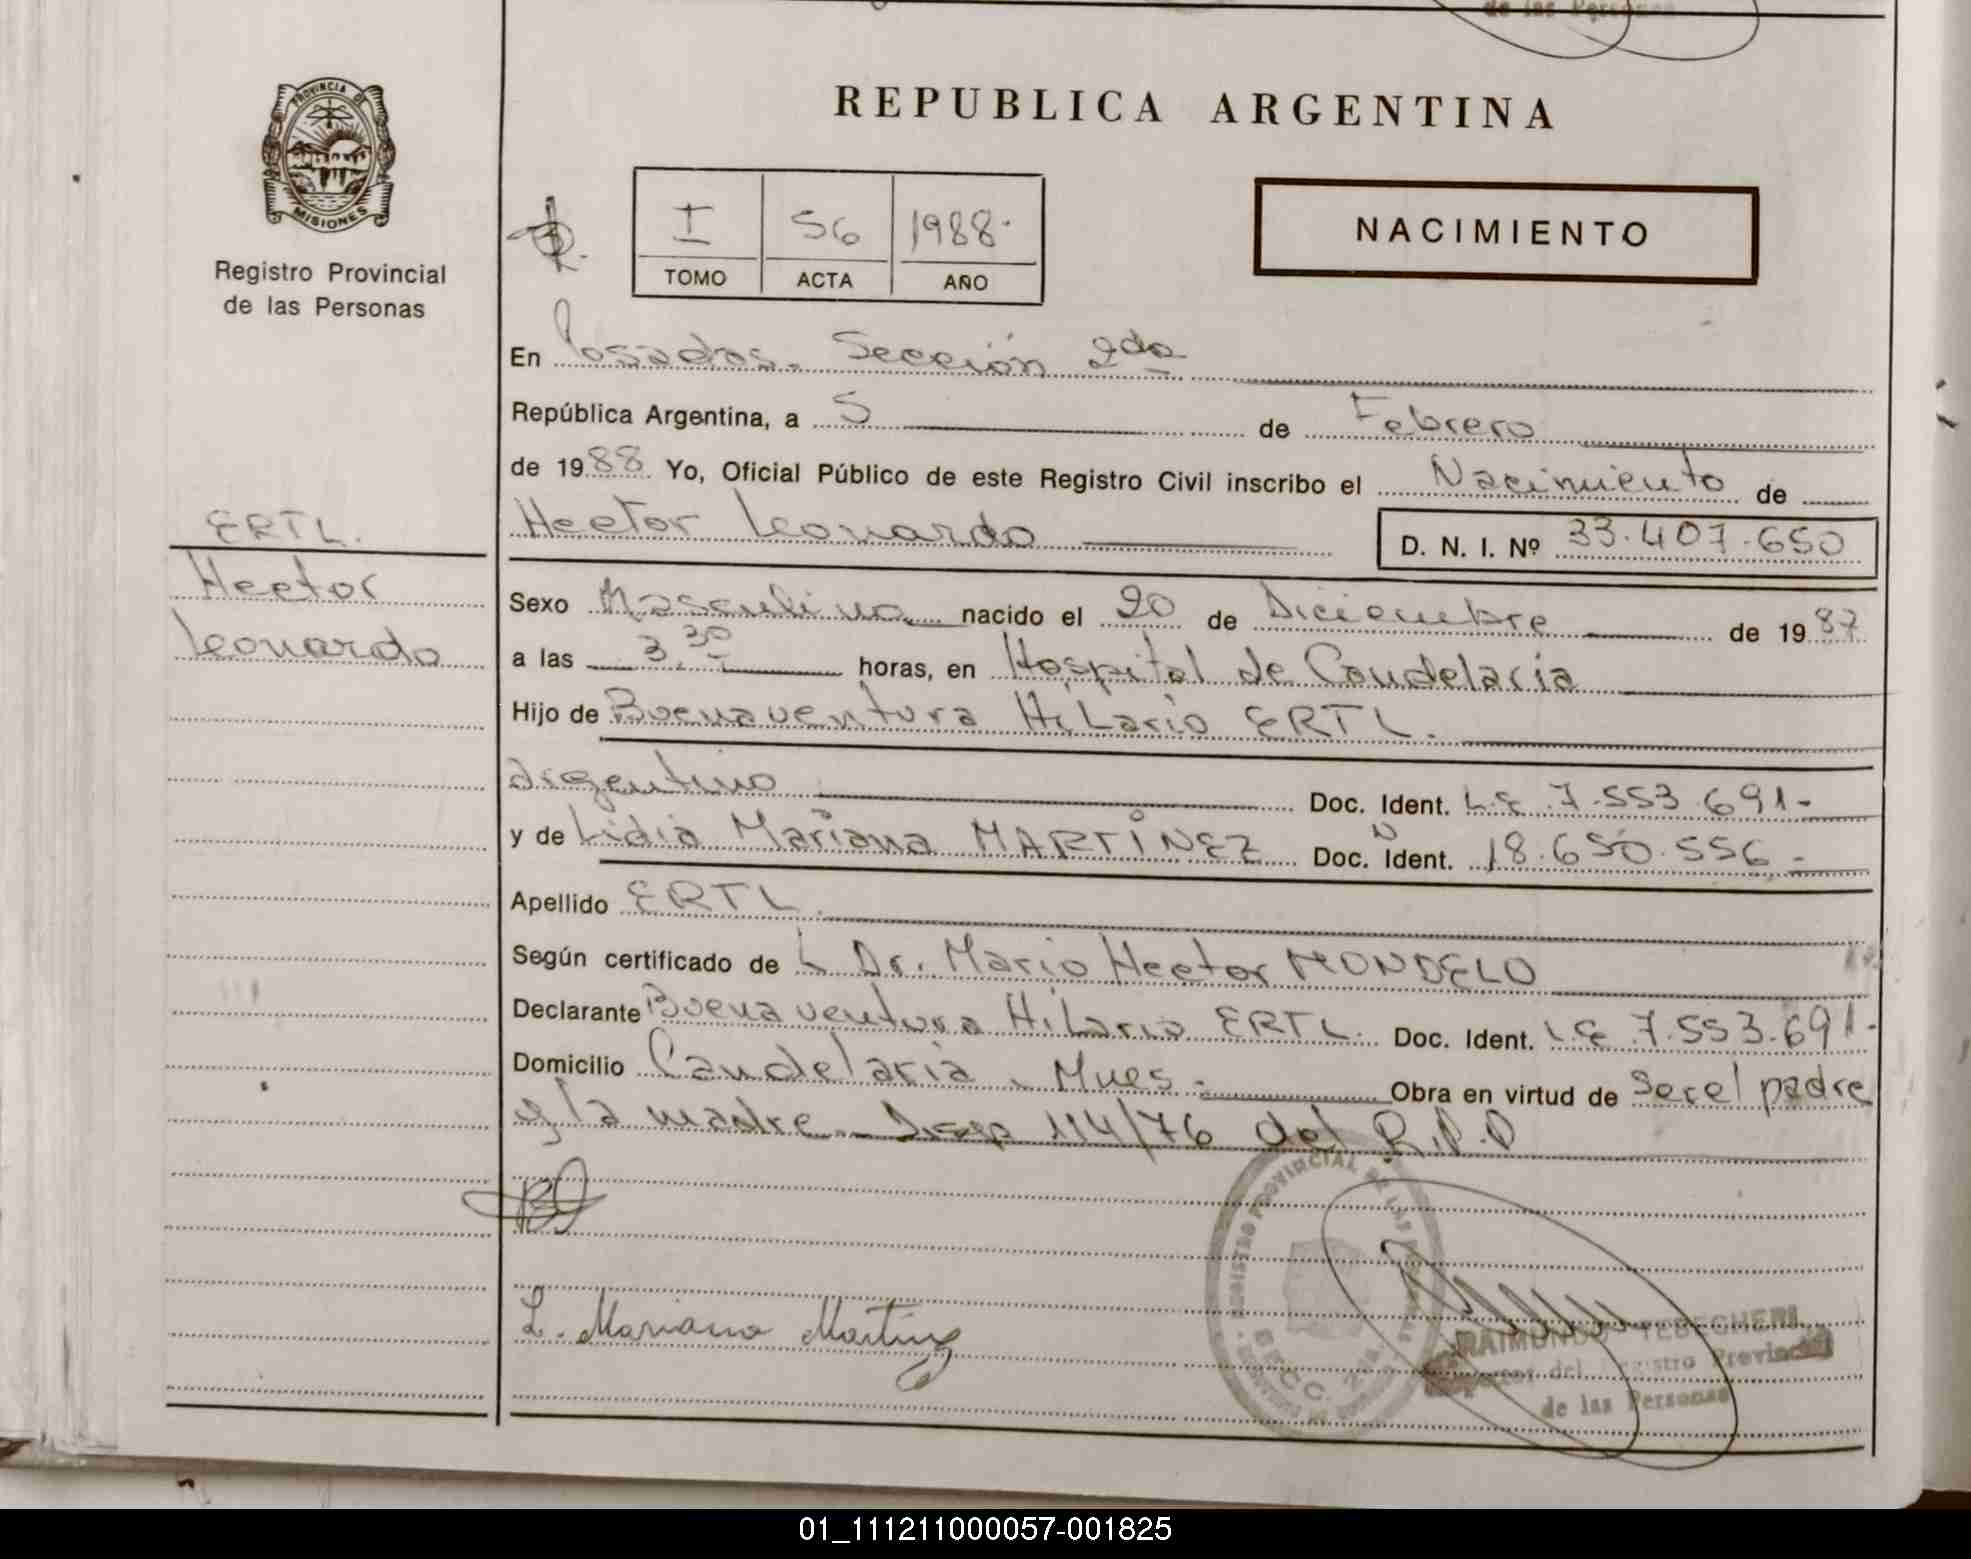 de las Persona
PROVINCIA DE
MISIONES
Registro Provincial
de las Personas
REPUBLICA ARGENTINA
I 56 1988-
TOMO ACTA AÑO
NACIMIENTO
En Posadas. Sección 2da
República Argentina, a 5 de Febrero
de 1988 Yo, Oficial Público de este Registro Civil inscribo el Nacimiento de
ERTL.
Hector Leonardo D. N. I. Nº 33.407.650
Hector
Leonardo
Sexo Masculino nacido el 20 de Diciembre de 1987
a las 3.30 horas, en Hospital de Candelaria
Hijo de Buenaventura Hilario ERTL.
argentino Doc. Ident. L.E. 7.553.691-
y de Lidia Mariana MARTINEZ Doc. Ident. 18.650.556-
Apellido ERTL
Según certificado de L Dr. Mario Hector MONDELO
Declarante Buenaventura Hilario ERTL. Doc. Ident. L.E 7.553.691-
Domicilio Candelaria, Mnes. Obra en virtud de Ser el padre
y la madre. Disp 114/76 del R.P.P
REGISTRO PROVINCIAL DE LAS
SECC. 2
L. Mariana Martinez
RAIMUNDO
del Registro Provincial
de las Personas
01_111211000057-001825